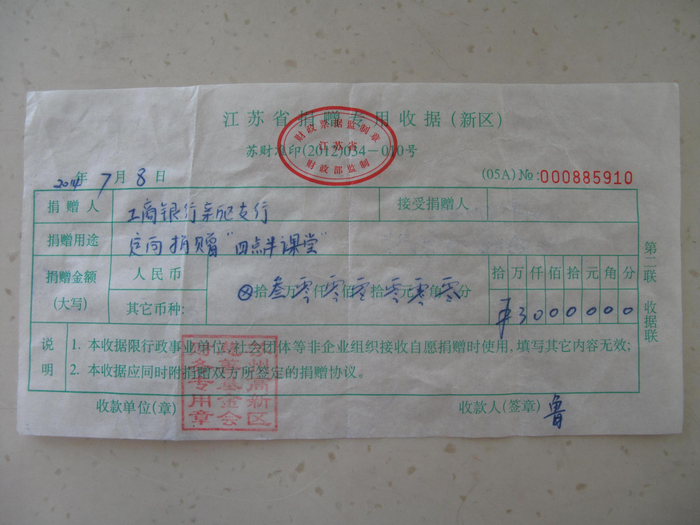 江苏省捐赠专用收据(新区)
财政票据监制章
江苏省
财政部监制
苏财准印(2012)034-010号
2014年7月8日
(05A) №:000885910
捐赠人 工商银行 支行 接受捐赠人
捐赠用途 定向捐赠“四点半课堂”
捐赠金额(大写) 人民币 其它币种:
⊗拾叁万零仟零佰零拾零元零角零分
拾万仟佰拾元角分
¥3000000
说明 1. 本收据限行政事业单位、社会团体等非企业组织接收自愿捐赠时使用,填写其它内容无效;
2. 本收据应同时附捐赠双方所签定的捐赠协议。
收款单位(章) 收款人(签章) 鲁
第二联 收据联